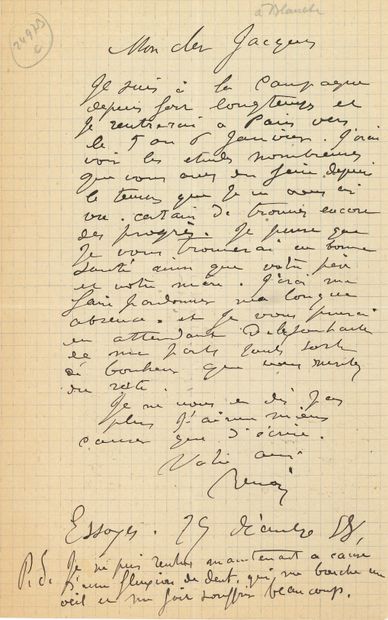 à Blanche
24923
C
Mon cher Jacques
Je suis à la Campagne
depuis fort longtemps et
je rentrerai à Paris vers
le 5 ou 6 Janvier. J'irai
voir les etudes nombreuses
que vous avez du faire depuis
le temps que je ne vous ai
vu. certain de trouver encore
des progrès. Je pense que
je vous trouverai en bonne
santé ainsi que votre père
et votre mère. J'irai me
faire pardonner ma longue
absence. et je vous prierai
en attendant de
de ma part toute sorte
de bonheur que vous
du reste.
Je ne vous en dis pas
plus j'aime mieux
causer que d'écrire.
Votre ami
Renoir
Essoyes. 29 décembre 88,
P.S. Je ne puis rentrer maintenant a cause
d'une fluxion de dent, qui me bouche un
oeil et me fait souffrir beaucoup.